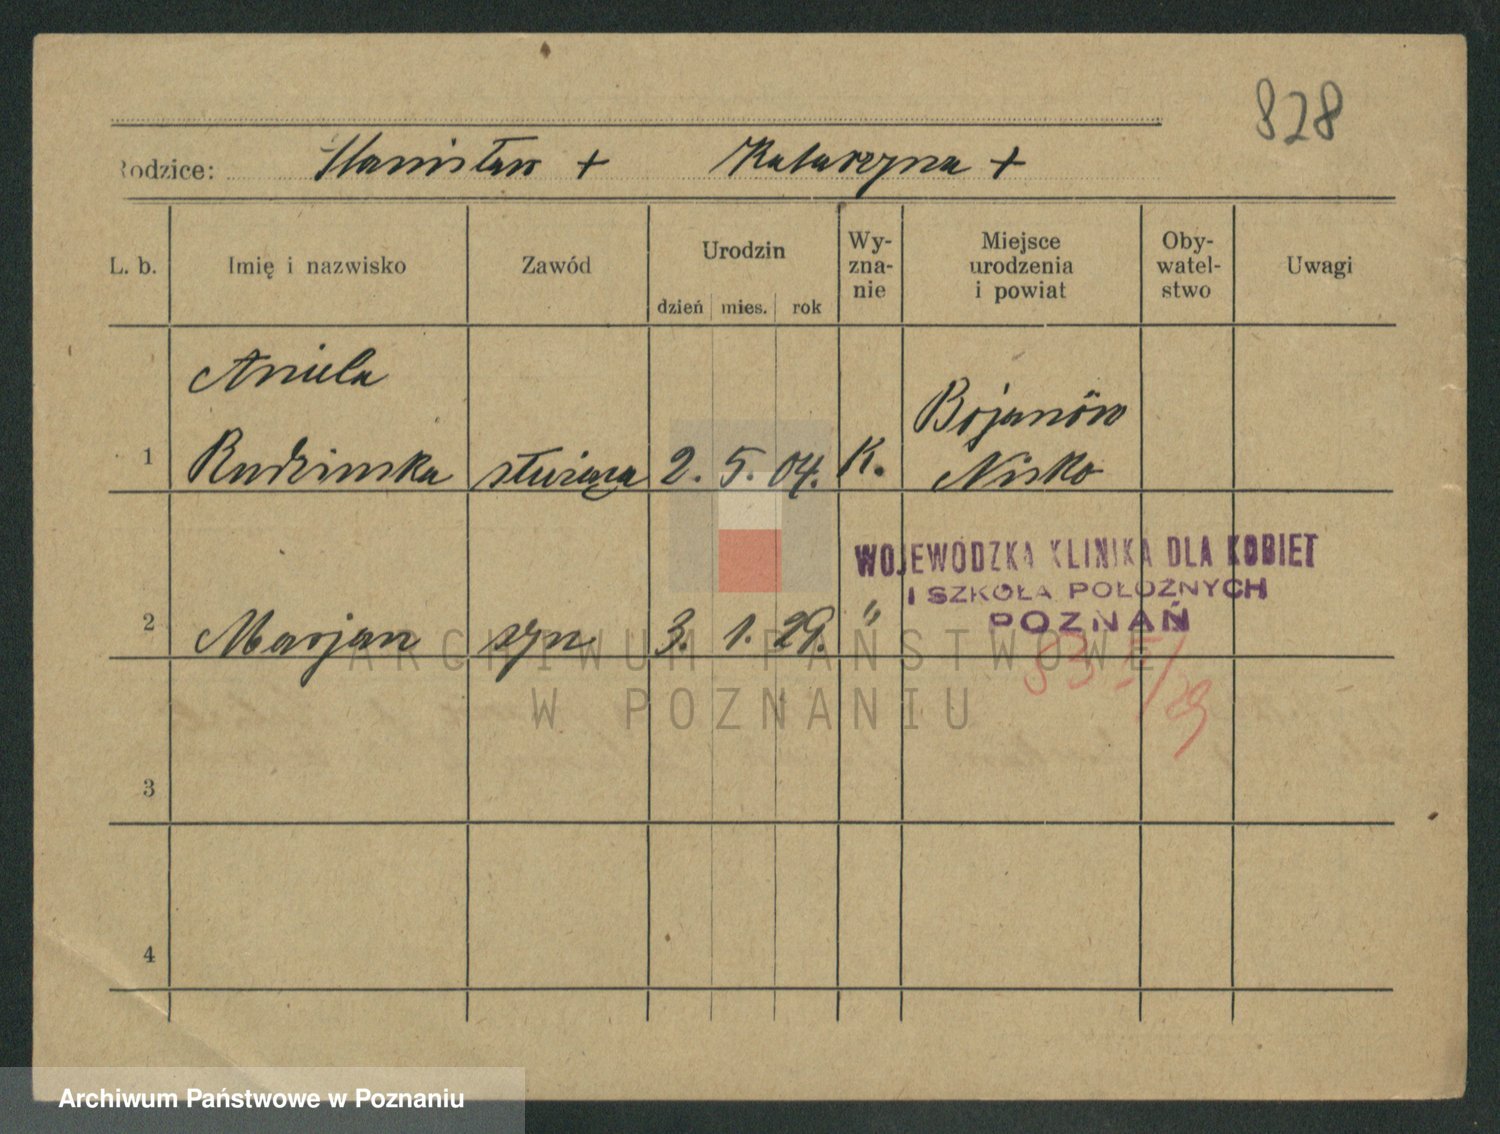 828
Rodzice: Stanisław + Katarzyna +
L. b. Imię i nazwisko Zawód Urodzin dzień mies. rok Wy-zna-nie Miejsce urodzenia i powiat Oby-watel-stwo Uwagi
Aniela
Bojanów
1 Rudzinska służąca 2. 5. 04. K. Nisko
WOJEWÓDZKA KLINIKA DLA KOBIET
I SZKOŁA POŁOŻNYCH
POZNAŃ
2 Marjan syn 3. 1. 29. "
ARCHIWUM PAŃSTWOWE
W POZNANIU
3
4
Archiwum Państwowe w Poznaniu